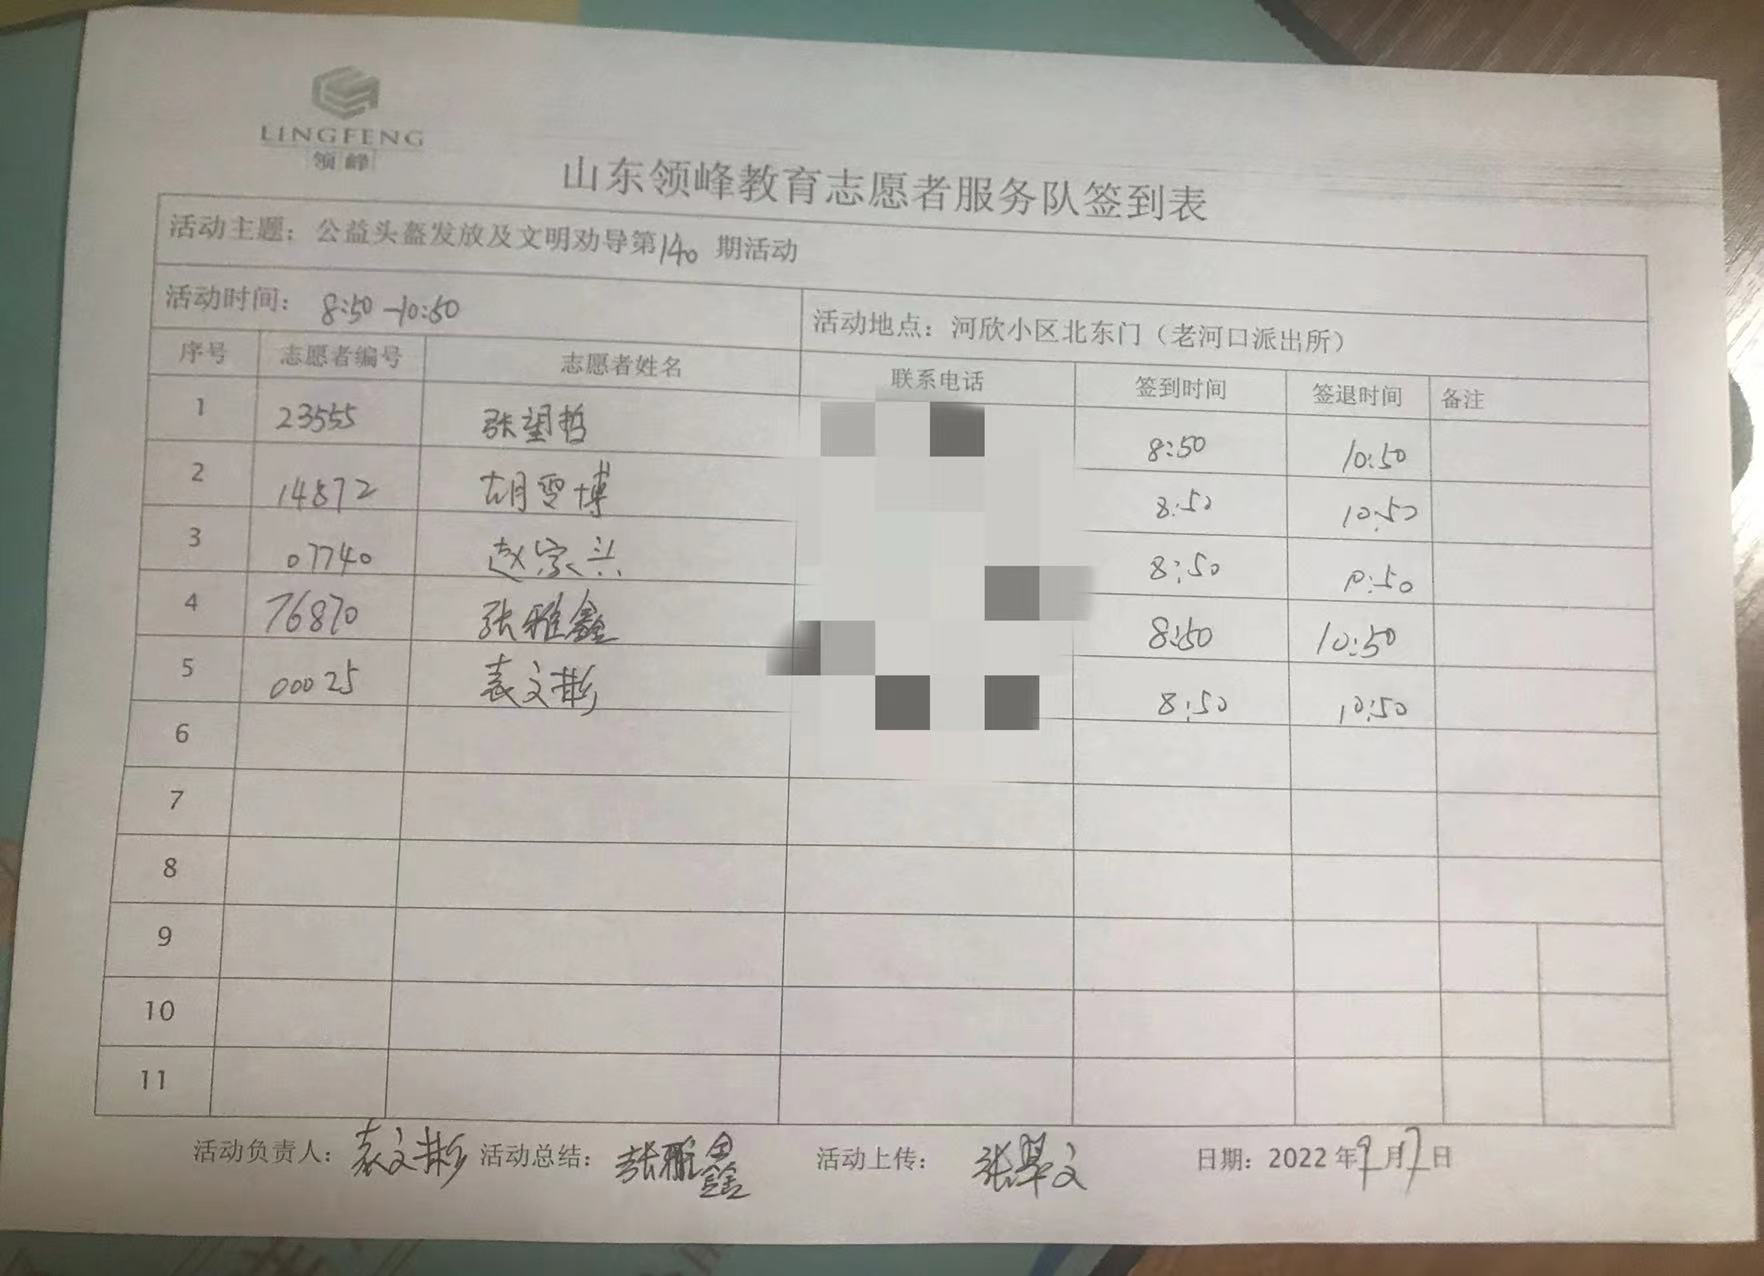 LINGFENG
领峰
山东领峰教育志愿者服务队签到表
活动主题：公益头盔发放及文明劝导第140期活动
活动时间：8:50-10:50 活动地点：河欣小区北东门（老河口派出所）
序号 志愿者编号 志愿者姓名 联系电话 签到时间 签退时间 备注
1 23555 张望哲 8:50 10:50
2 14872 胡雪博 8:50 10:50
3 07740 赵宗兴 8:50 10:50
4 76870 张雅鑫 8:50 10:50
5 00025 袁文彬 8:50 10:50
6
7
8
9
10
11
活动负责人：袁文彬 活动总结：张雅鑫 活动上传：张翠文 日期：2022年9月7日